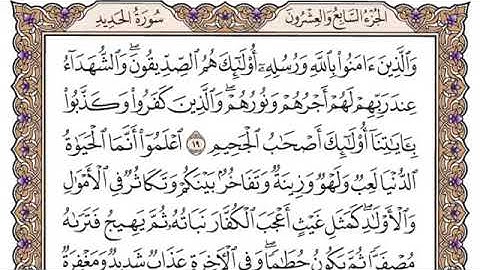 الجزء السابع والعشرون
سورة الحديد
وَالَّذِينَ ءَامَنُوا۟ بِاللَّهِ وَرُسُلِهِۦٓ أُو۟لَٰٓئِكَ هُمُ الصِّدِّيقُونَ ۖ وَالشُّهَدَآءُ
عِندَ رَبِّهِمْ لَهُمْ أَجْرُهُمْ وَنُورُهُمْ ۖ وَالَّذِينَ كَفَرُوا۟ وَكَذَّبُوا۟
بِـَٔايَٰتِنَآ أُو۟لَٰٓئِكَ أَصْحَٰبُ الْجَحِيمِ ١٩ اعْلَمُوٓا۟ أَنَّمَا الْحَيَوٰةُ
الدُّنْيَا لَعِبٌ وَلَهْوٌ وَزِينَةٌ وَتَفَاخُرٌۢ بَيْنَكُمْ وَتَكَاثُرٌ فِى الْأَمْوَٰلِ
وَالْأَوْلَٰدِ ۖ كَمَثَلِ غَيْثٍ أَعْجَبَ الْكُفَّارَ نَبَاتُهُۥ ثُمَّ يَهِيجُ فَتَرَىٰهُ
مُصْفَرًّا ثُمَّ يَكُونُ حُطَٰمًا ۖ وَفِى الْءَاخِرَةِ عَذَابٌ شَدِيدٌ وَمَغْفِرَةٌ